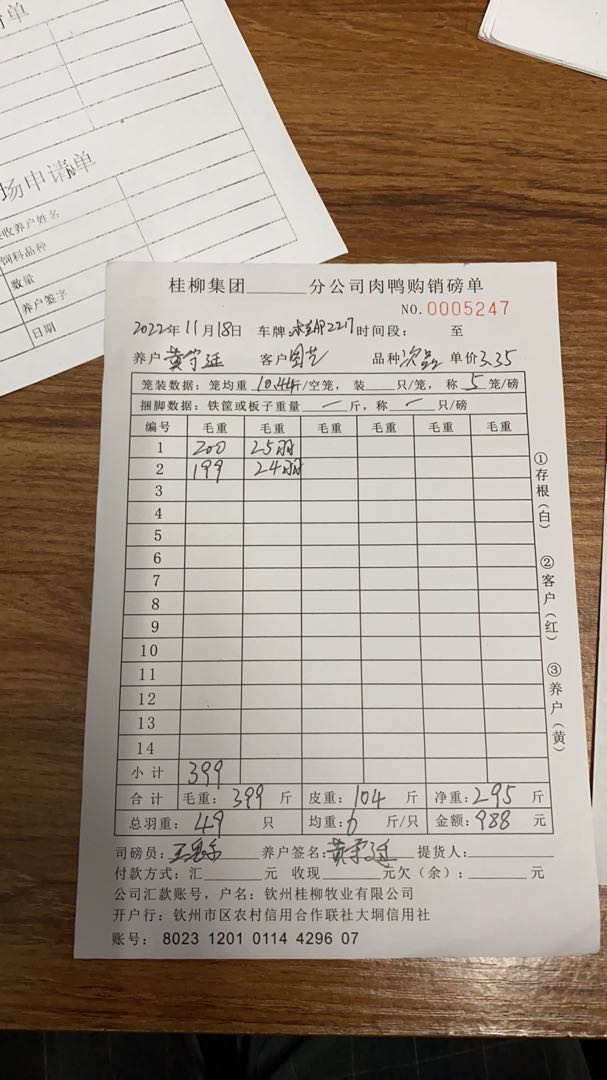 场申请单
养户姓名
饲料品种
数量
养户签字
日期
桂柳集团______分公司肉鸭购销磅单
NO.0005247
2022年11月18日 车牌: AP2217 时间段: 至
养户 黄守延 客户 品种 次品 单价3.35
笼装数据: 笼均重 10.4斤/空笼, 装___只/笼, 称 5 笼/磅
捆脚数据: 铁筐或板子重量 — 斤, 称 — 只/磅
编号 毛重 毛重 毛重 毛重 毛重 毛重
1 200 25羽
2 199 24羽
3
4
5
6
7
8
9
10
11
12
13
14
小计 399
合计 毛重: 399 斤 皮重: 104 斤 净重: 295 斤
总羽重: 49 只 均重: 6 斤/只 金额: 988 元
司磅员: 养户签名: 黄守延 提货人:
付款方式: 汇______元 收现______元欠(余):______元
公司汇款账号, 户名: 钦州桂柳牧业有限公司
开户行: 钦州市区农村信用合作联社大垌信用社
账号: 8023 1201 0114 4296 07
①存根(白)
②客户(红)
③养户(黄)